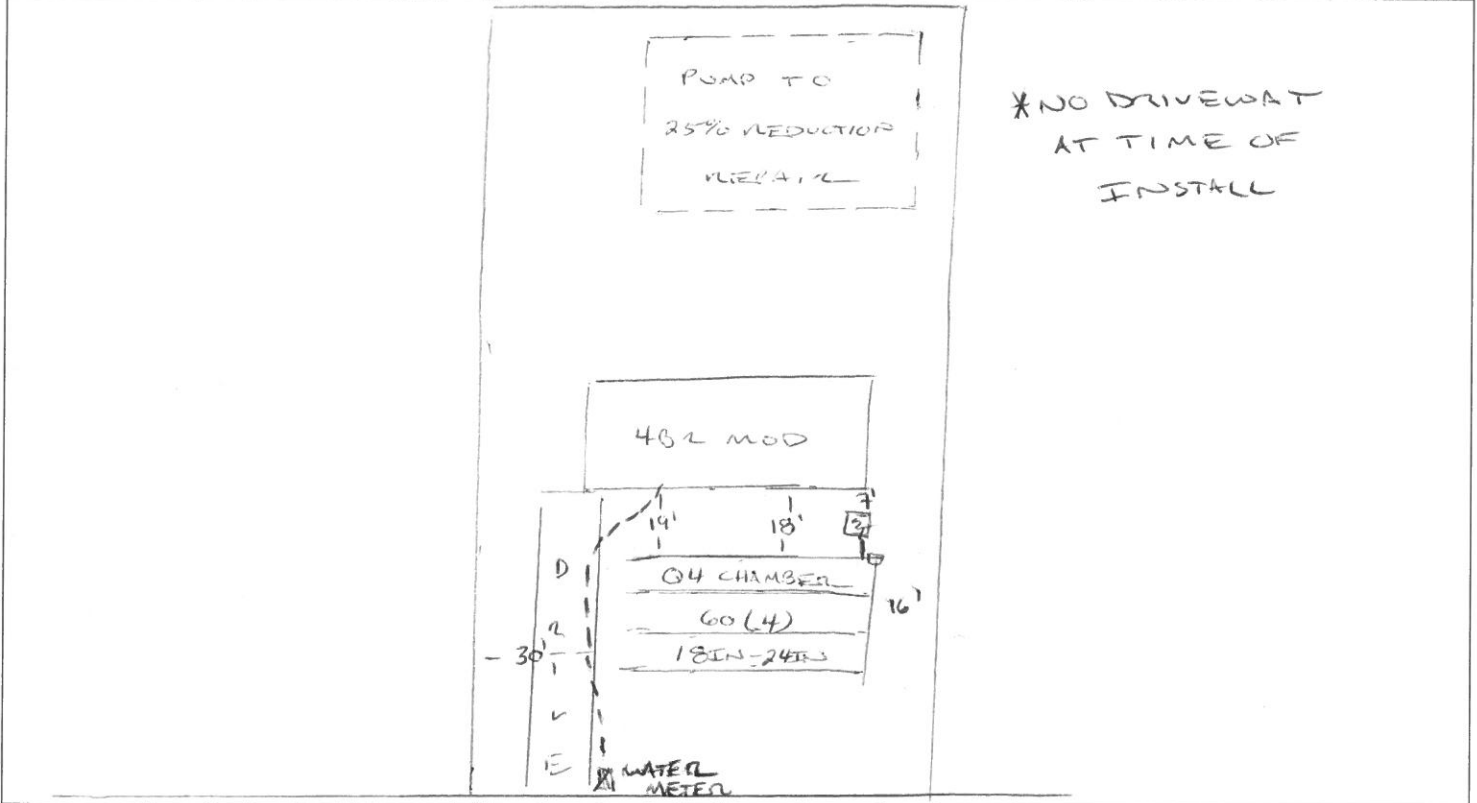 PUMP TO
25% REDUCTION
REPAIR
*NO DRIVEWAY
AT TIME OF
INSTALL
4BR MOD
19'
18'
7'
Q4 CHAMBER
60(4)
18IN-24IN
16'
30'
DRIVE
WATER
METER